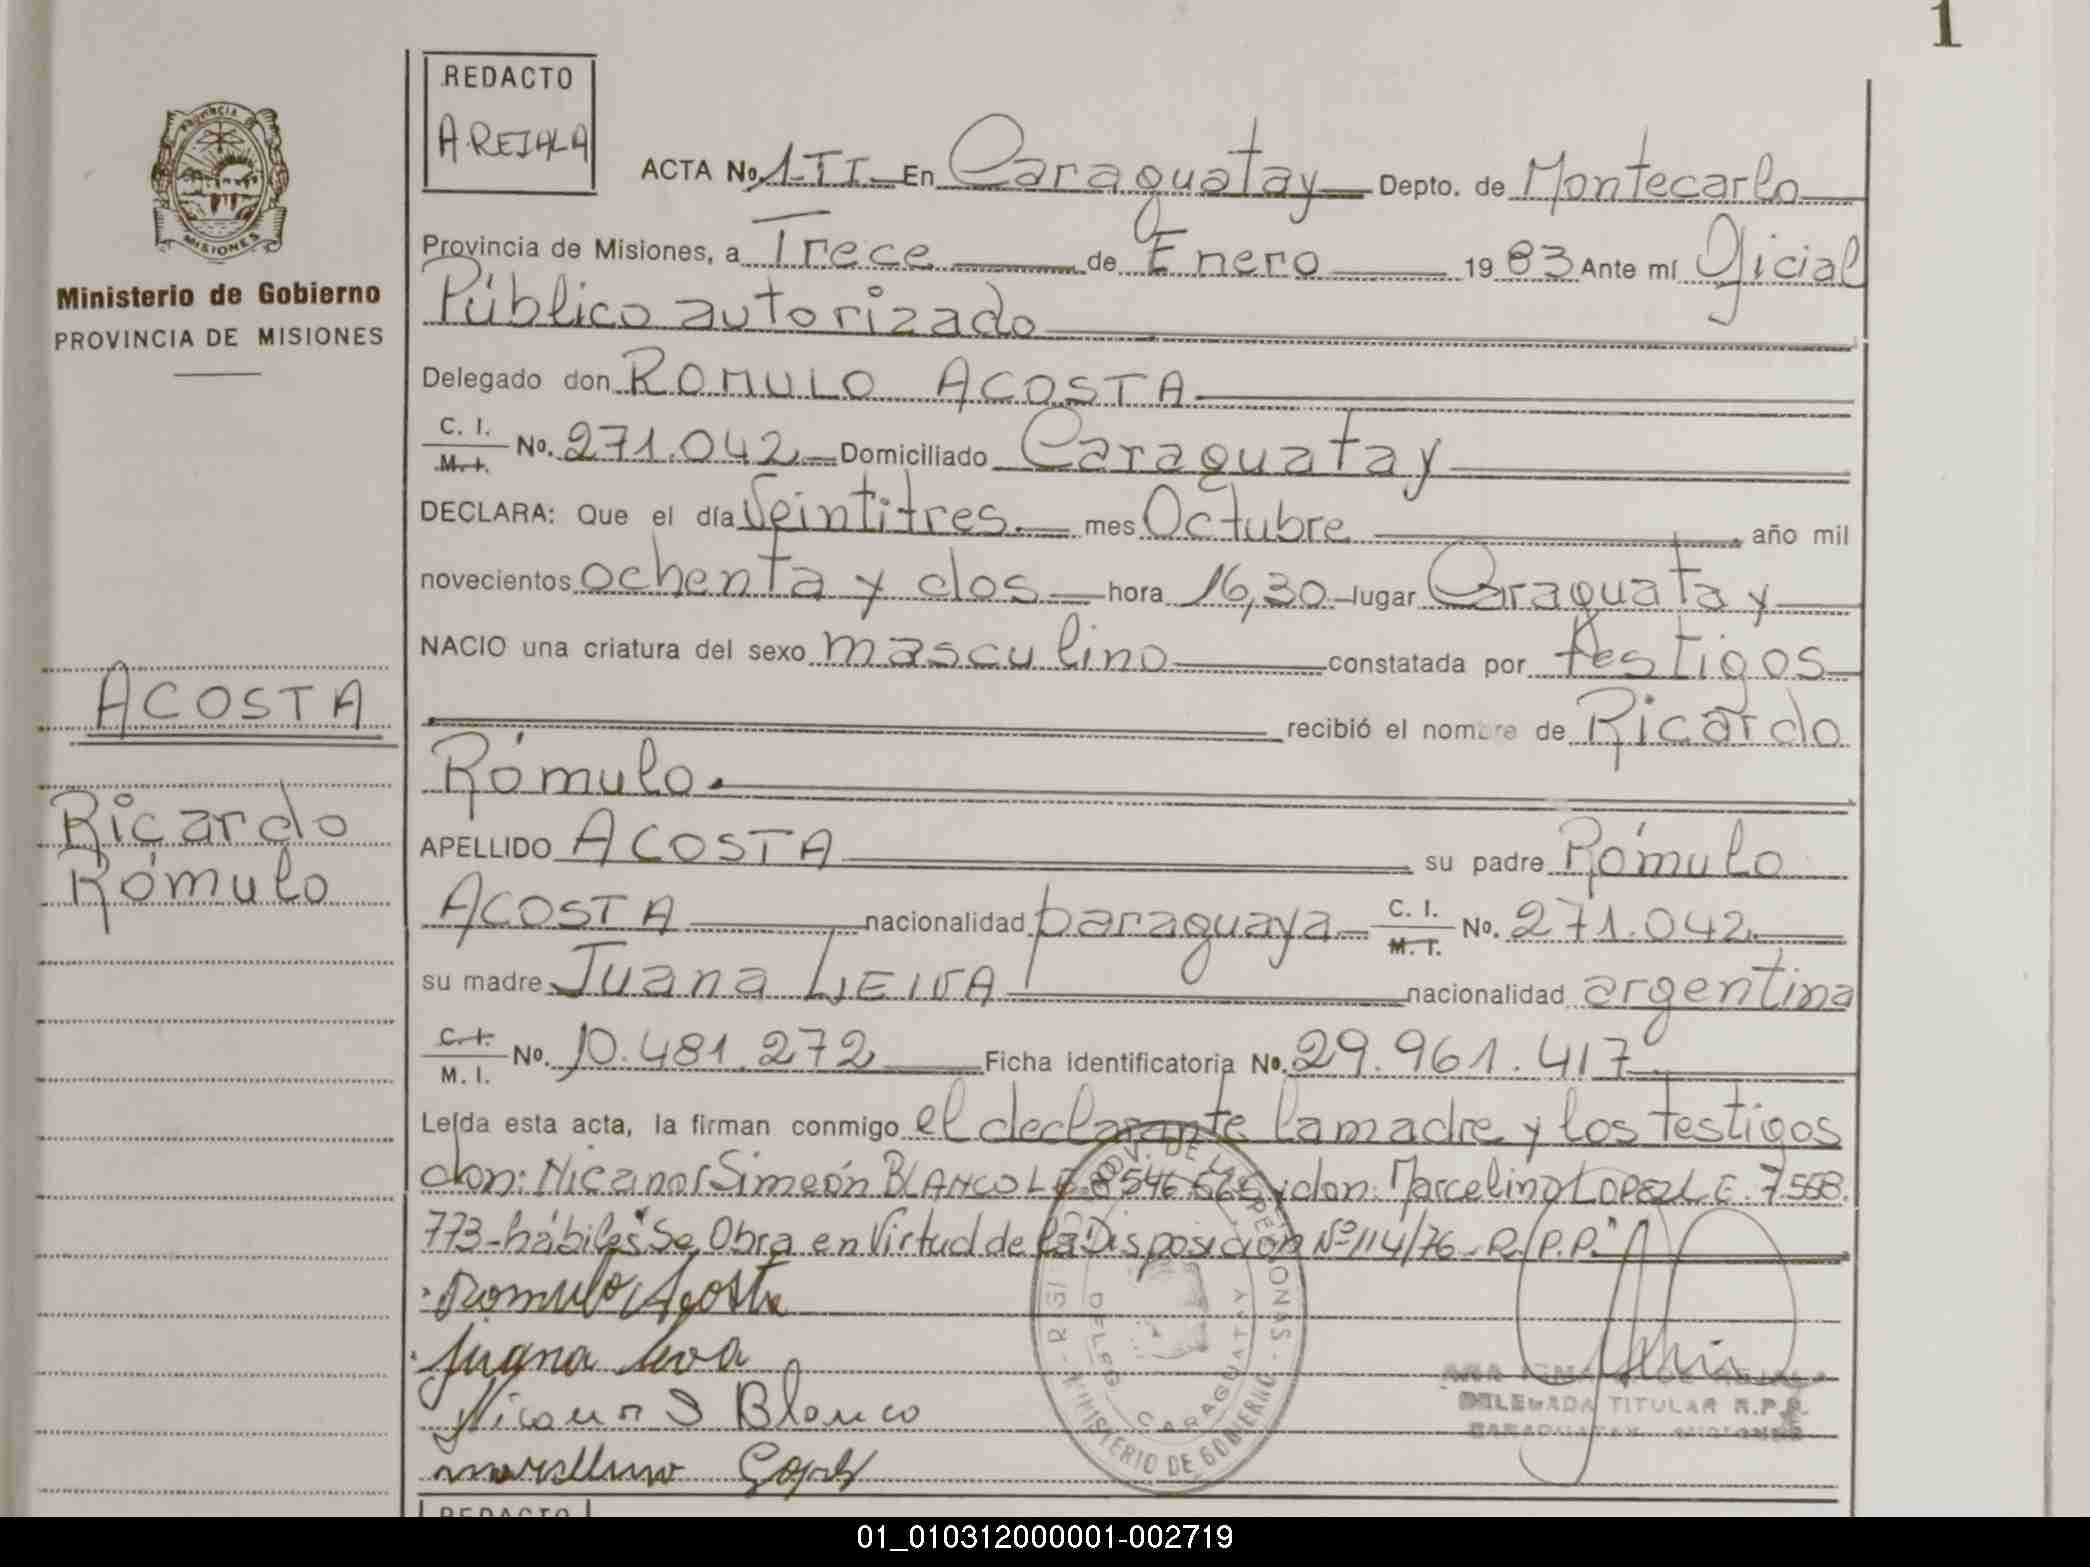 1
REDACTO
A.REJALA
PROVINCIA DE
MISIONES
Ministerio de Gobierno
PROVINCIA DE MISIONES
ACTA No. 1-TI- En Caraguatay Depto. de Montecarlo
Provincia de Misiones, a Trece de Enero 1983 Ante mí Oficial
Público autorizado
Delegado don ROMULO ACOSTA
C. I.
M. I. No. 271.042 Domiciliado Caraguatay
DECLARA: Que el día Veintitres mes Octubre año mil
novecientos ochenta y dos hora 16,30 lugar Caraguatay
NACIO una criatura del sexo masculino constatada por testigos
recibió el nombre de Ricardo
Rómulo.
ACOSTA
Ricardo
Rómulo
APELLIDO ACOSTA su padre Rómulo
ACOSTA nacionalidad paraguaya C. I.
M. I. No. 271.042
su madre Juana LIEIVA nacionalidad argentina
C. I.
M. I. No. 10.481.272 Ficha identificatoria No. 29.961.417
Leída esta acta, la firman conmigo el declarante la madre y los testigos
don: Nicanor Simeón BLANCO L.E. 8546 y don: Marcelino LOPEZ L.E. 7.558.
773-hábiles "Se Obra en Virtud de la Disposición Nº 114/76-R.P.P."
Romulo Acosta
Juana
Nicanor S Blanco
Marcelino Lopez
MINISTERIO DE GOBIERNO
CARAGUATAY
DELEGADA TITULAR R.P.P.
CARAGUATAY MISIONES
REDACTO
01_010312000001-002719